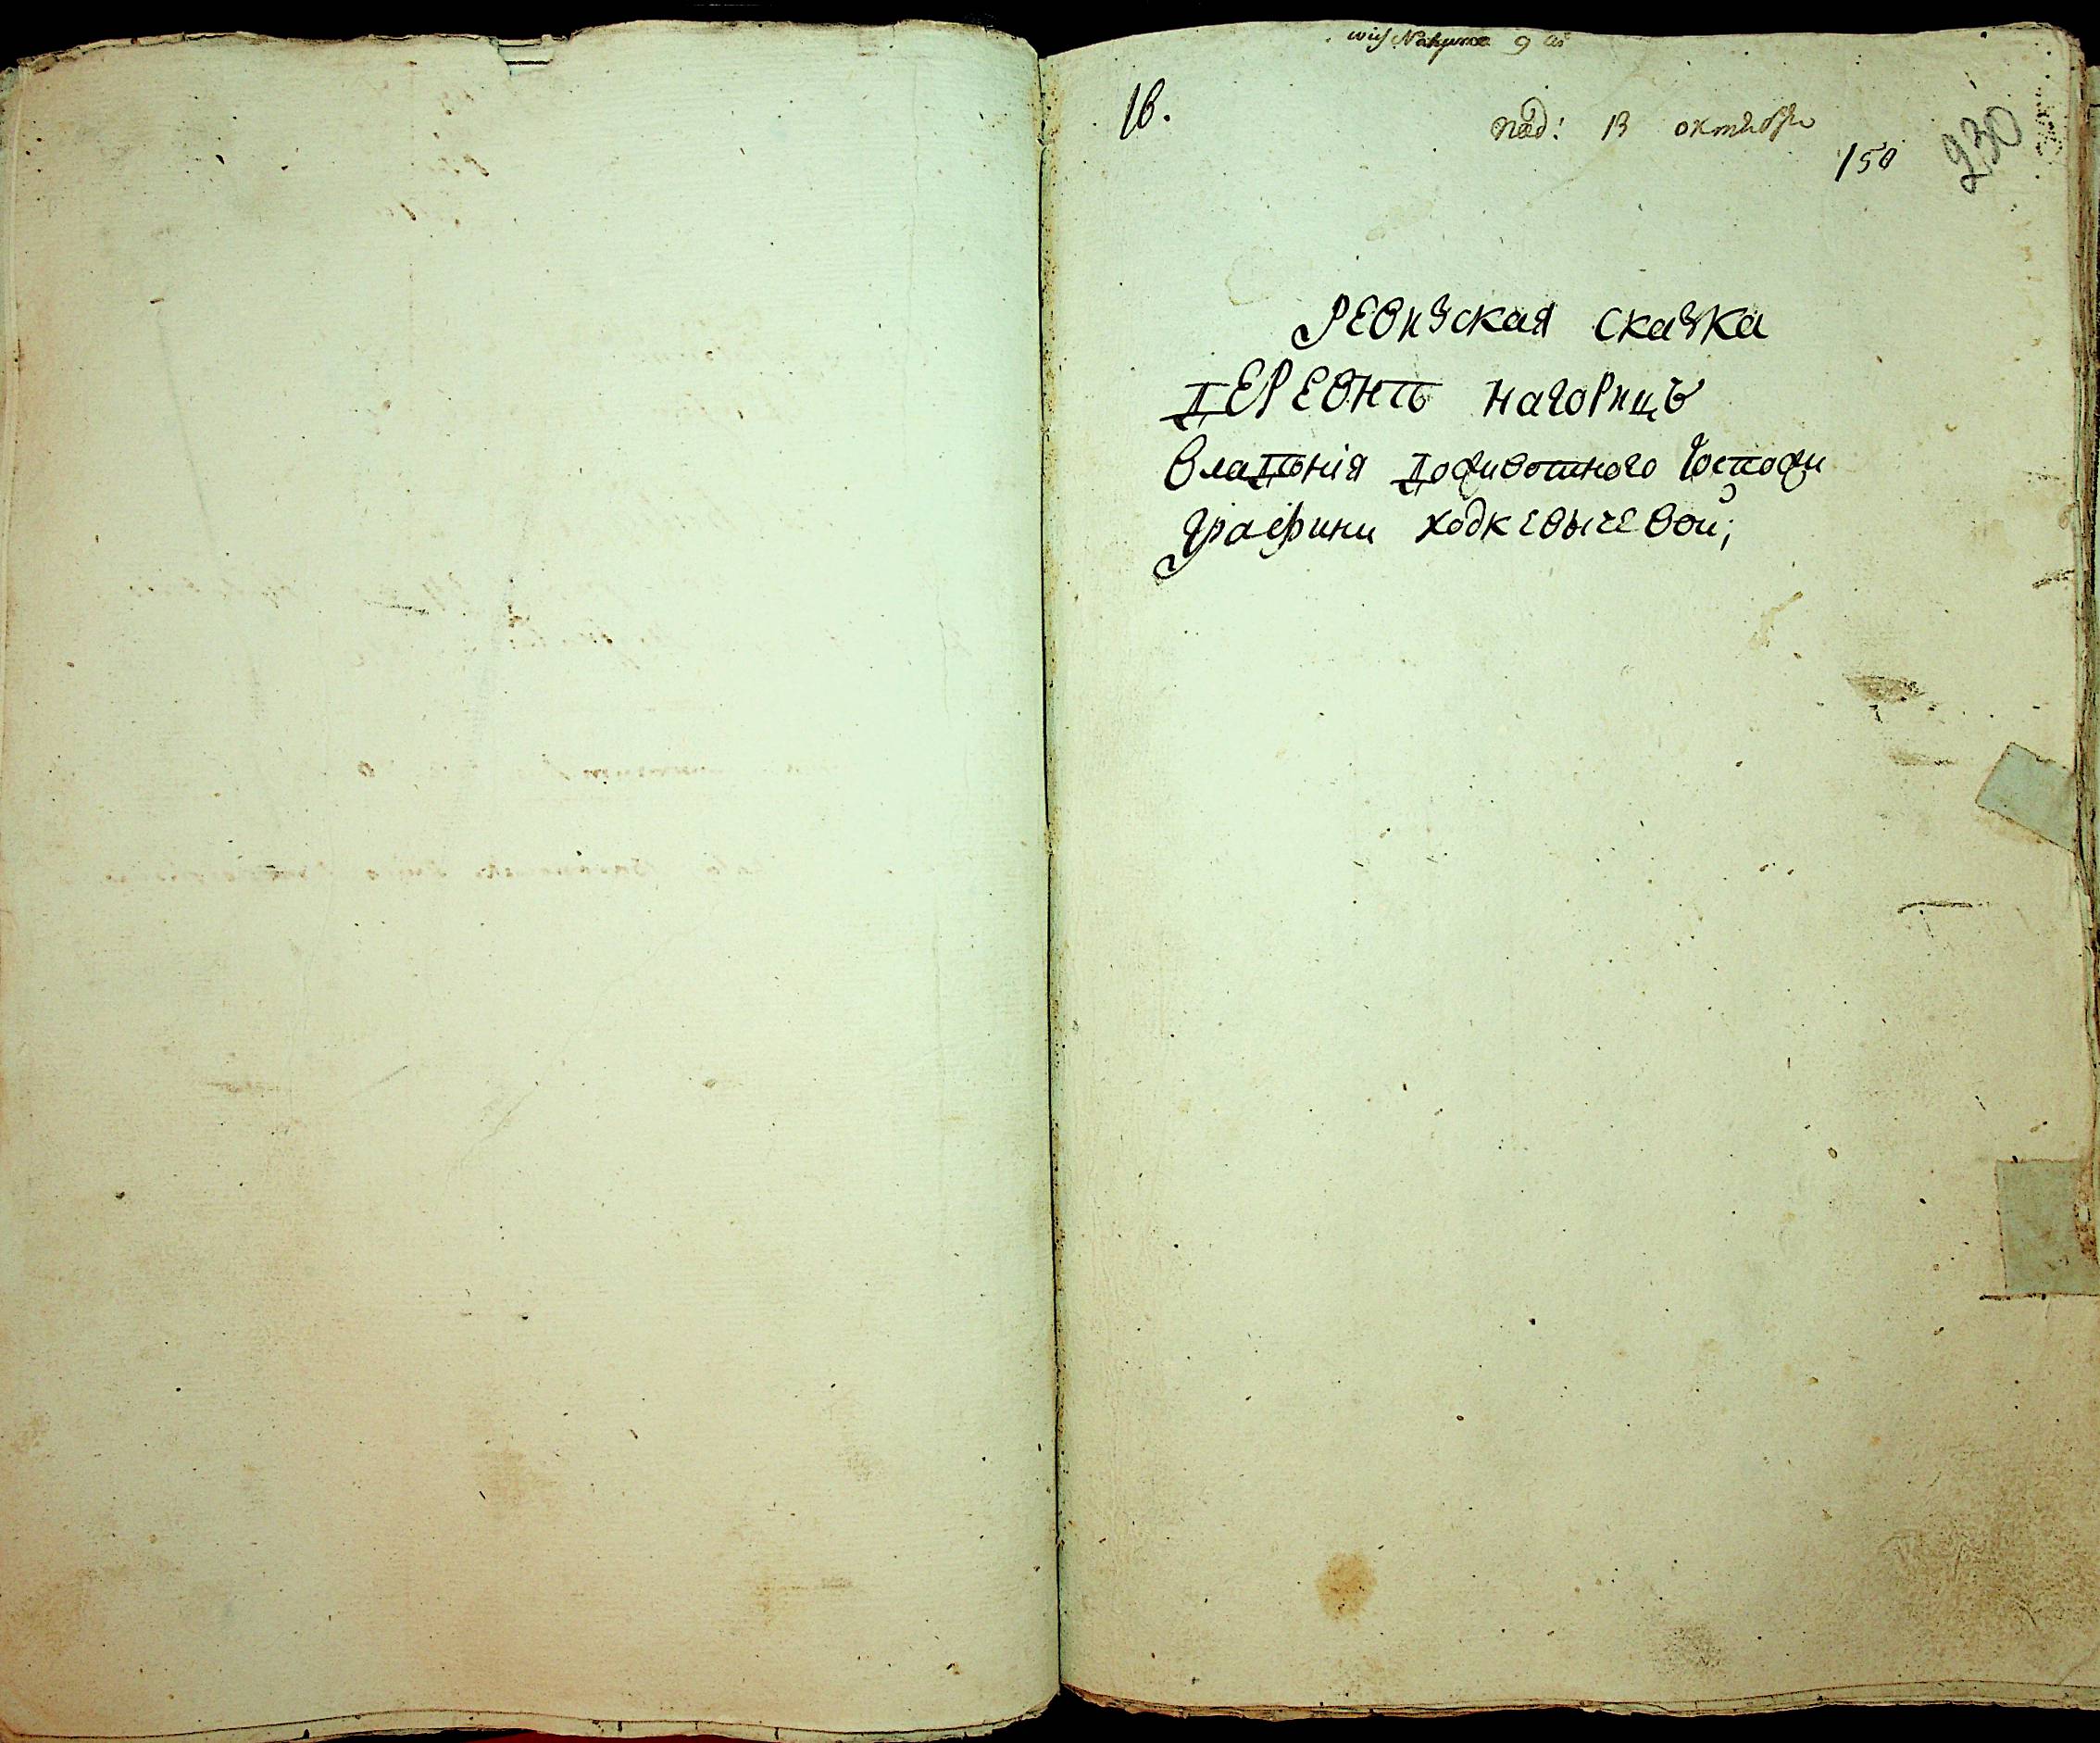 wieś Nahorce 9 
16.
под: 13 октября
150
230
Ревизская сказка
Деревнѣ нагорицъ
владѣнія Доживотного Госпожи
Графини ходкевычевой;